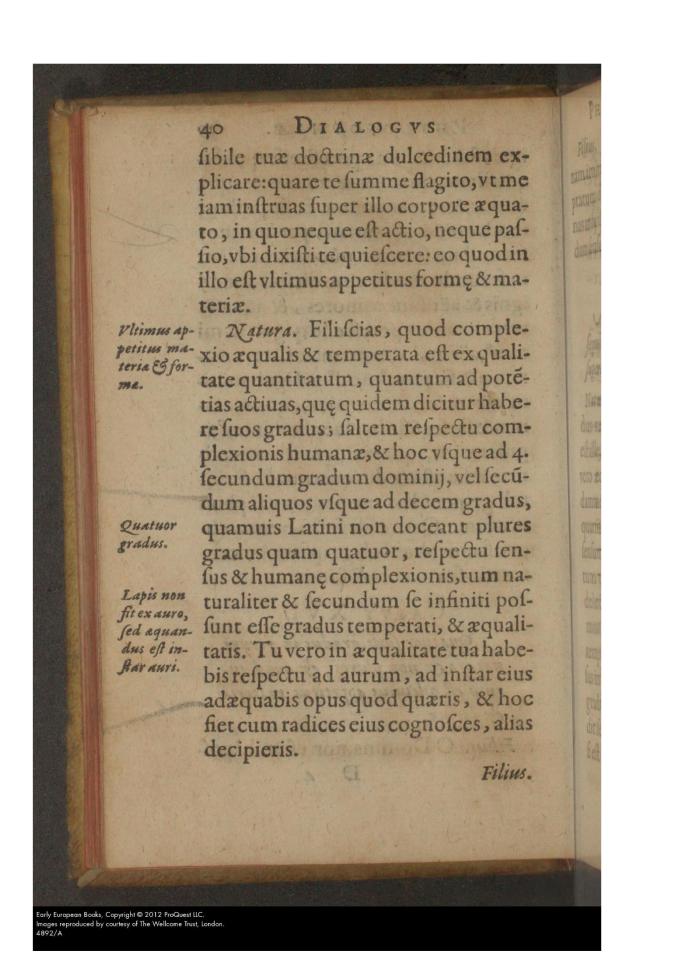 40 DIALOGVS
ſibile tuæ doctrinæ dulcedinem ex-
plicare: quare te ſumme flagito, vt me
iam inſtruas ſuper illo corpore æqua-
to, in quo neque eſt actio, neque paſ-
ſio, vbi dixiſti te quieſcere: eo quod in
illo eſt vltimus appetitus formę & ma-
teriæ.
Natura. Fili ſcias, quod comple-
xio æqualis & temperata eſt ex quali-
tate quantitatum, quantum ad potē-
tias actiuas, quę quidem dicitur habe-
re ſuos gradus; ſaltem reſpectu com-
plexionis humanæ, & hoc vſque ad 4.
ſecundum gradum dominij, vel ſecū-
dum aliquos vſque ad decem gradus,
quamuis Latini non doceant plures
gradus quam quatuor, reſpectu ſen-
ſus & humanę complexionis, tum na-
turaliter & ſecundum ſe infiniti poſ-
ſunt eſſe gradus temperati, & æquali-
tatis. Tu vero in æqualitate tua habe-
bis reſpectu ad aurum, ad inſtar eius
adæquabis opus quod quæris, & hoc
fiet cum radices eius cognoſces, alias
decipieris.
Filius.
Vltimus ap-
petitus ma-
teria & for-
ma.
Quatuor
gradus.
Lapis non
fit ex auro,
ſed æquan-
dus eſt in-
ſtar auri.
Early European Books, Copyright © 2012 ProQuest LLC.
Images reproduced by courtesy of The Wellcome Trust, London.
4892/A